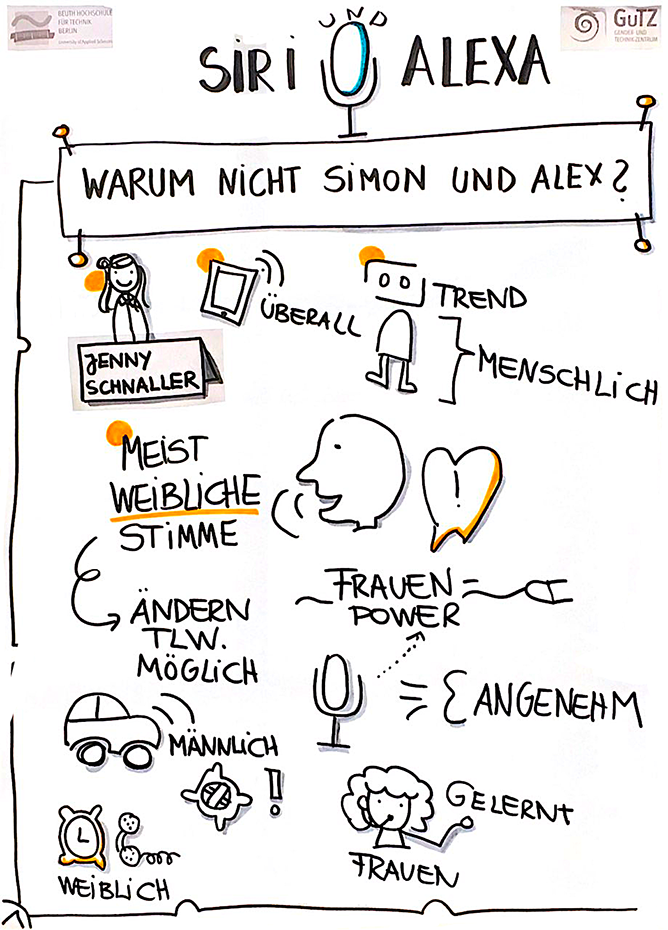 BEUTH HOCHSCHULE
FÜR TECHNIK
BERLIN
University of Applied Sciences
GuTZ
GENDER UND
TECHNIK ZENTRUM
SIRI UND ALEXA
WARUM NICHT SIMON UND ALEX?
JENNY
SCHNALLER
ÜBERALL
TREND
MENSCHLICH
MEIST
WEIBLICHE
STIMME
!
FRAUEN
POWER
ÄNDERN
TLW.
MÖGLICH
ANGENEHM
MÄNNLICH
!
GELERNT
FRAUEN
WEIBLICH